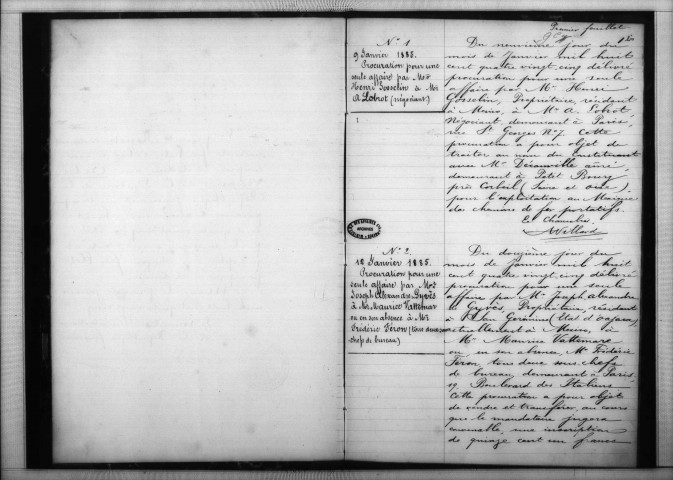 Premier feuillet
N° 1
9 Janvier 1885.
Procuration pour une
seule affaire par Mr
Henri Gosselin à Mr
A Lobrot (négociant)
1
N° 2
12 Janvier 1885.
Procuration pour une
seule affaire par Mr
Joseph Alexandre Gyvès
à Mr Maurice Vattemare
ou en son absence à Mr
Frédéric Féron (tous deux sous
chefs de bureau)
Du neuvième jour du
mois de Janvier mil huit
cent quatre vingt cinq délivré
procuration pour une seule
affaire par Mr Henri
Gosselin, Propriétaire, résidant
à Mexico, à Mr A. Lobrot
Négociant demeurant à Paris,
rue St Georges N° 7. Cette
procuration a pour objet de
traiter au nom du constituant
avec Mr Decauville aîné,
demeurant à Petit Bourg
près Corbeil (Seine et oise)
pour l'exploitation au Mexique
de chemins de fer portatifs.
Le Chancelier
Du douzième jour du
mois de Janvier mil huit
cent quatre vingt cinq délivré
procuration pour une seule
affaire par Mr Joseph Alexandre
Gyvès, Propriétaire, résidant
à San Geronimo (Etat d'Oajaca)
actuellement à Mexico, à
Mr Maurice Vattemare
ou en son absence, Mr Frédéric
Féron, tous deux sous chefs
de bureau, demeurant à Paris
19, Boulevard des Italiens
Cette procuration a pour objet
de vendre et transférer, au cours
que le mandataire jugera
convenable, une inscription
de quinze cent un francs